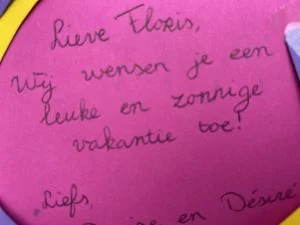 Lieve Floris,
Wij wensen je een
leuke en zonnige
vakantie toe!
Liefs,
en Désiré